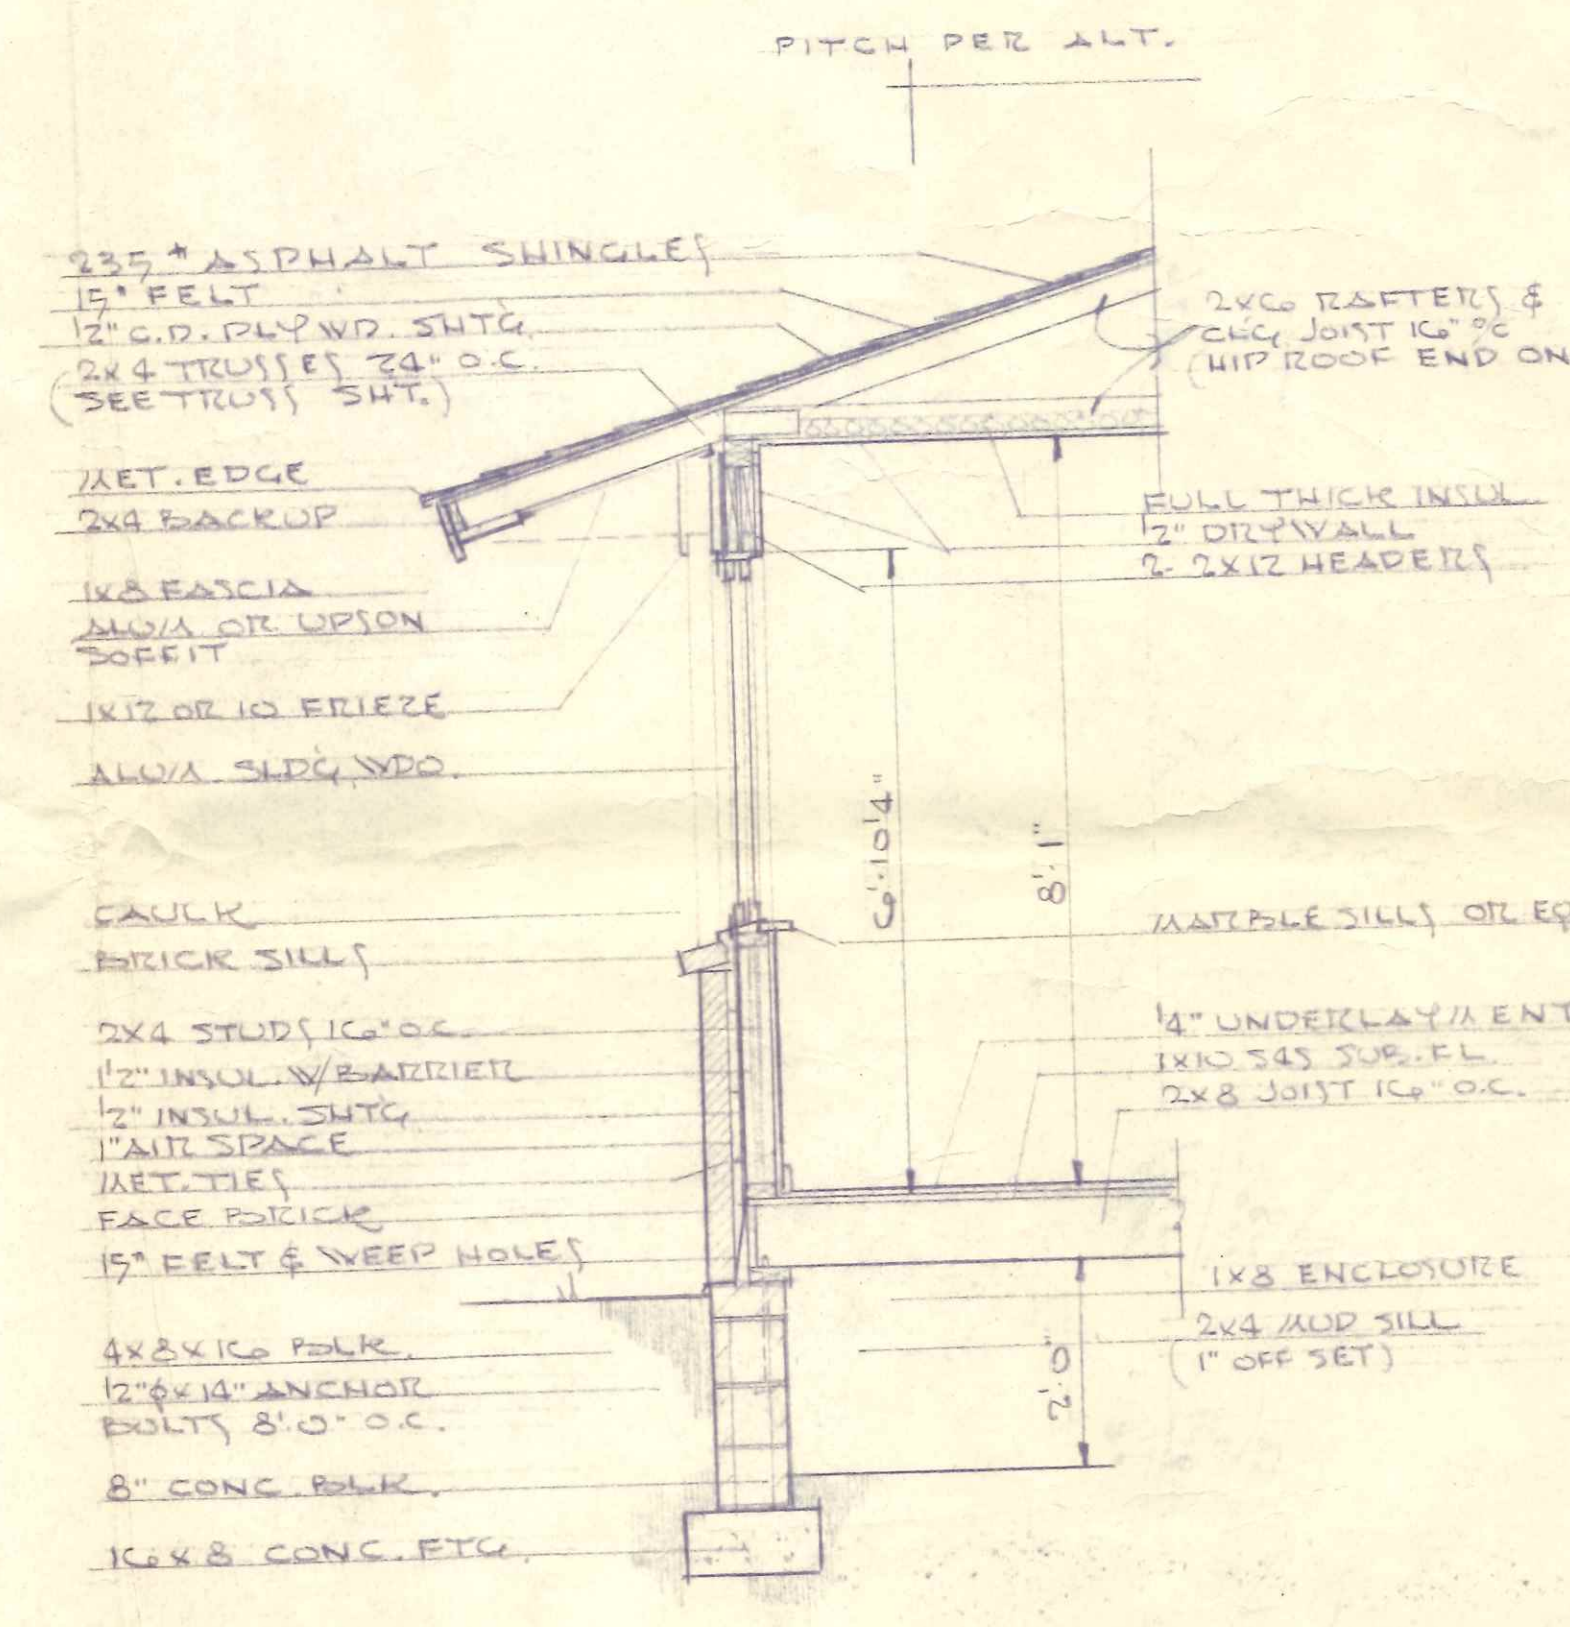 PITCH PER ALT.
235# ASPHALT SHINGLES
15# FELT
1/2" C.D. PLYWD. SHTG
2x4 TRUSSES 24" O.C.
(SEE TRUSS SHT.)
MET. EDGE
2x4 BACKUP
1x8 FASCIA
ALUM OR UPSON
SOFFIT
1x12 OR 10 FRIEZE
ALUM. SLDG. WDO.
CAULK
BRICK SILLS
2x4 STUDS 16" O.C.
1 1/2" INSUL. W/BARRIER
1/2" INSUL. SHTG
1" AIR SPACE
MET. TIES
FACE BRICK
15# FELT & WEEP HOLES
4x8x16 BLK.
1/2"φx14" ANCHOR
BOLTS 8'-0" O.C.
8" CONC. BLK.
16x8 CONC. FTG.
6'-10 1/4"
8'-1"
2'-0"
2x6 RAFTERS &
CLG JOIST 16" o/c
(HIP ROOF END ON
FULL THICK INSUL
1/2" DRYWALL
2- 2x12 HEADERS
MARBLE SILLS OR EQ
1/4" UNDERLAYMENT
1x10 S4S SUB. FL.
2x8 JOIST 16" O.C.
1x8 ENCLOSURE
2x4 MUD SILL
(1" OFF SET)